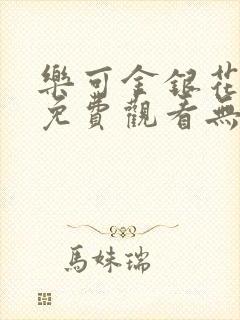 樂可金銀花
免費觀看無
馬妹瑞